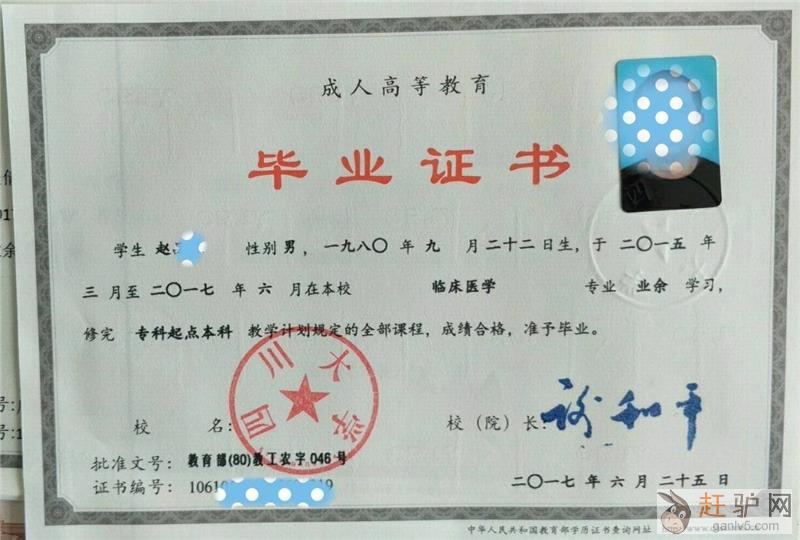 成人高等教育
毕业证书
学生 赵 性别 男，一九八〇 年 九 月 二十二 日生，于 二〇一五 年
三 月至 二〇一七 年 六 月在本校 临床医学 专业 业余 学习，
修完 专科起点本科 教学计划规定的全部课程，成绩合格，准予毕业。
四川大学
校 名：
校（院）长：谢和平
批准文号：教育部(80)教工农字046号
证书编号：10610
二〇一七 年 六 月 二十五 日
中华人民共和国教育部学历证书查询网址
赶驴网
ganlv5.com